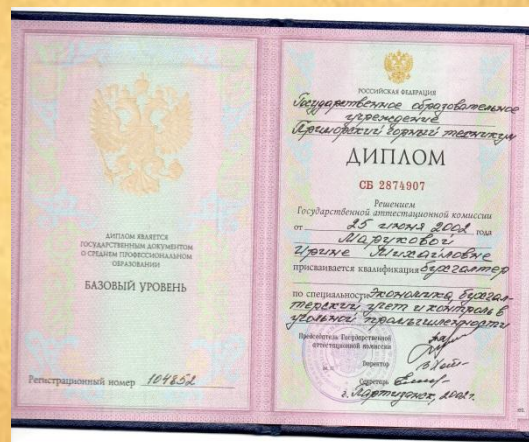 ДИПЛОМ ЯВЛЯЕТСЯ
ГОСУДАРСТВЕННЫМ ДОКУМЕНТОМ
О СРЕДНЕМ ПРОФЕССИОНАЛЬНОМ
ОБРАЗОВАНИИ
БАЗОВЫЙ УРОВЕНЬ
Регистрационный номер 104852
РОССИЙСКАЯ ФЕДЕРАЦИЯ
Государственное образовательное
учреждение
Приморский горный техникум
ДИПЛОМ
СБ 2874907
Решением
Государственной аттестационной комиссии
от 25 июня 2002 года
Маруковой
Ирине Михайловне
присваивается квалификация бухгалтер
по специальности Экономика, бухгал-
терский учет и контроль в
угольной промышленности
Председатель Государственной
аттестационной комиссии
Директор
Секретарь
г. Партизанск, 2002 г.